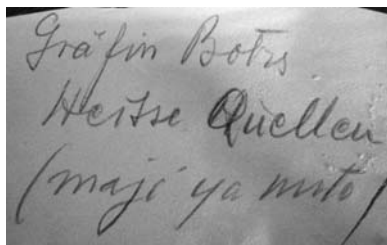 Gräfin Botos
Heisse Quellen
(maji ya moto)